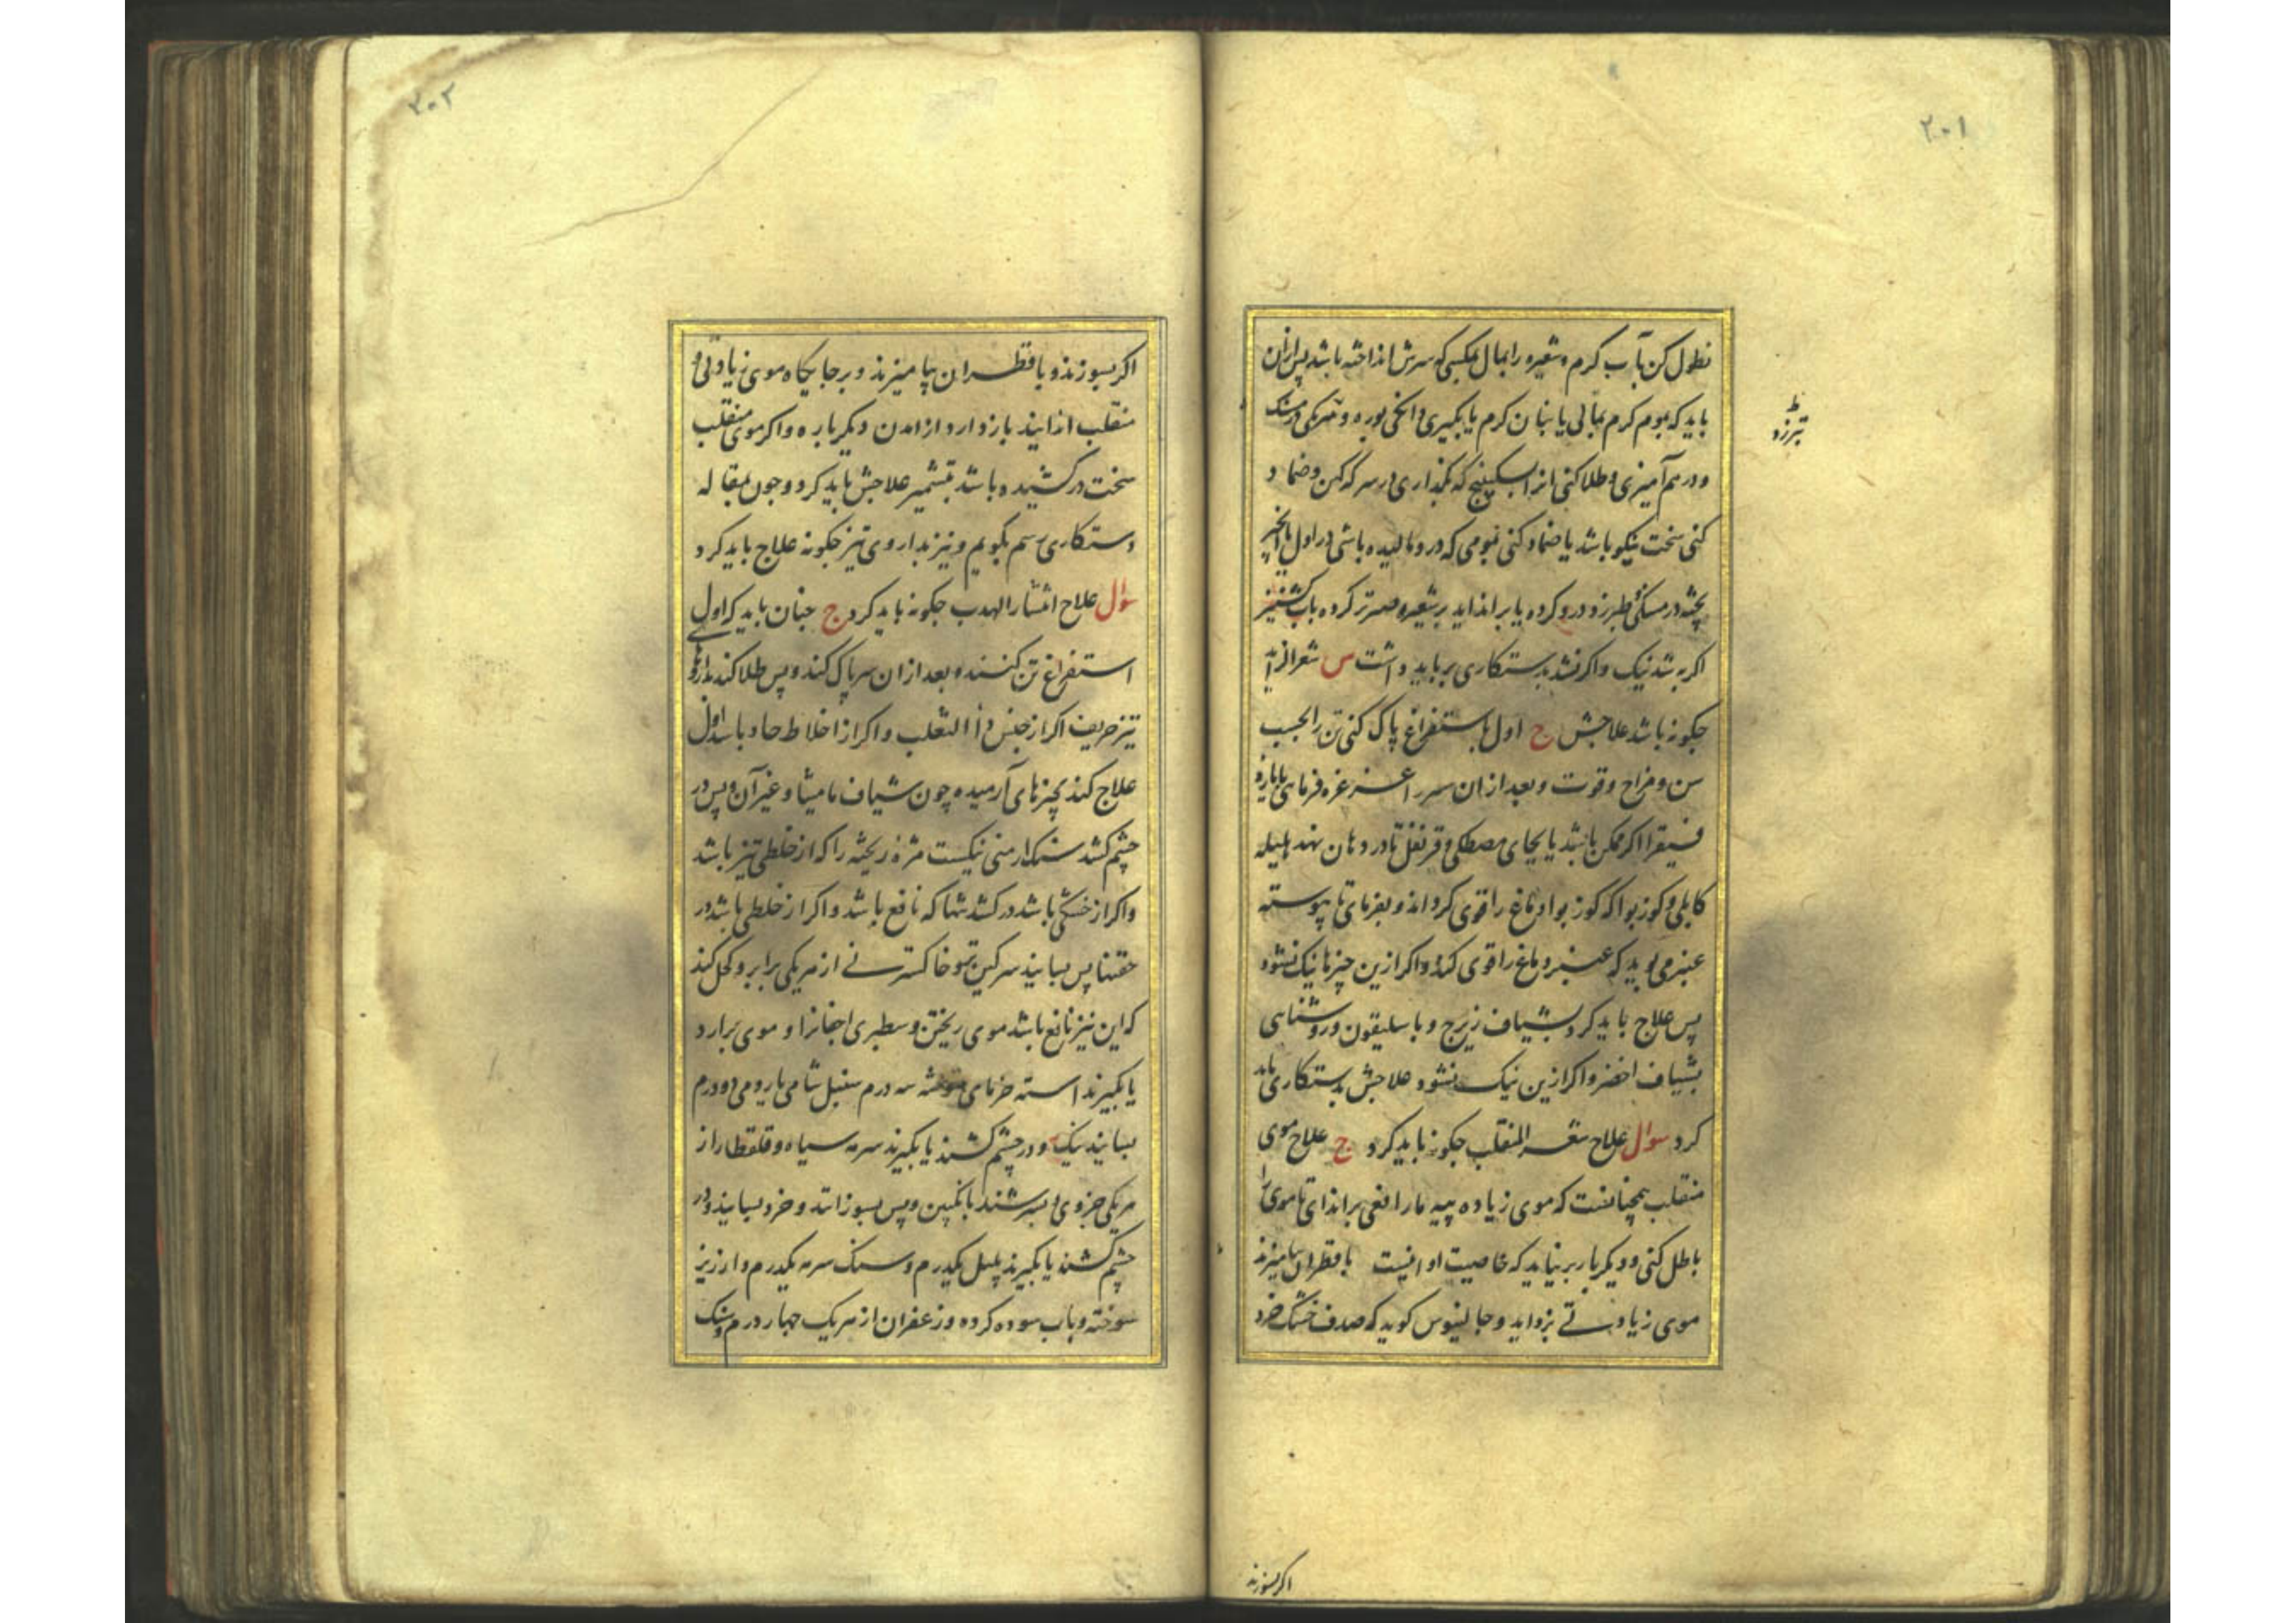 ۲۰۱
نطول کن بآب کرم و شعیره را بمال بمکسی که سرش انداخته باشد پس ازان
باید که بموم کرم بمالی یا بنان کرم یا بکیری و انکی بوره و
و درهم آمیزی و طلا کنی انرا سکبینج که بگذاری در سرکه کهن و ضماد
کنی سخت نیکو باشد یا ضماد کنی بمومی که درو مالیده باشی در اول یا انجیر
پخته در طبرزد درو کرده یا براندایند بر شعیره صبر تر کرده بآب کشنیز
اکر به شد نیک و اکر نشد بدستکاری بر باید داشت س شعر الزاید
چکونه باشد علاجش ج اول باستفراغ پاک کنی تن را بحسب
سن و مزاج و قوت و بعد از ان سر را غرغره فرمای بایارج
فیقرا اکر ممکن باشد یا بجای مصطکی و قرنفل تا در دهان نهد هلیله
کابلی و کوز بوا که کوز بوا دماغ را قوی کرداند و بفرمای تا پیوسته
عنبر می بوید که عنبر دماغ را قوی کند و اکر ازین چیزها نیک نشود
پس علاج باید کرد بشیاف زنج و باسلیقون و روشنایی
بشیاف اخضر و اکر ازین نیک نشود علاجش بدستکاری باید
کرد سوال علاج شعر المنقلب چکونه باید کرد ج علاج موی
منقلب همچنانست که موی زیاده پیه مار افعی براندای تا موی را
باطل کنی و دیکر بار بر نیاید که خاصیت او اینست با قطران بیامیزند
موی زیادتی بزداید و جالینوس کوید که صدف خشک خرد
ط
تبرزد
اکر بسوزند
۲۰۲
اکر بسوزند و با قطران بیامیزند و بر جایکاه موی زیادتی و
منقلب اندایند باز دارد از امدن دیکر باره و اکر موی منقلب
سخت در کشیده باشد بتشمیر علاجش باید کرد و چون بمقاله
دستکاری رسم بکویم و نیز بداروی تیز چکونه علاج باید کرد
سوال علاج انتشار الهدب چکونه باید کرد ج چنان باید که اول
استفراغ تن کنند و بعد از ان سر پاک کند و پس طلا کند بداروهای
تیز حریف اکر از جنس داء الثعلب و اکر از اخلاط حاد باشد اول
علاج کند بچیزهای آرمیده چون شیاف مامیثا و غیر آن و پس در
چشم کشد سنک ارمنی نیکست مژه ریخته را که از خلطی تیز باشد
و اکر از خشکی باشد در کشد تنها که نافع باشد و اکر از خلطی باشد در
پس بسایند سرکین و خاکستر نی از هریکی برابر و کحل کند
که این نیز نافع باشد موی ریختن و سطبری اجفانرا و موی برارد
یا بکیرند استه خرمای سوخته سه درم سنبل شامی یا رومی دو درم
بسایند نیک و در چشم کشند یا بکیرند سرمه سیاه و قلقطار از
هریکی جزوی و بسرشند بانکبین و پس بسوزانند و خرد بسایند و در
چشم کشند یا بکیرند پلپل یکدرم و سنک سرمه یکدرم و ارزیز
سوخته و باب سوده کرده و زعفران از هریک چهار درم و سنک